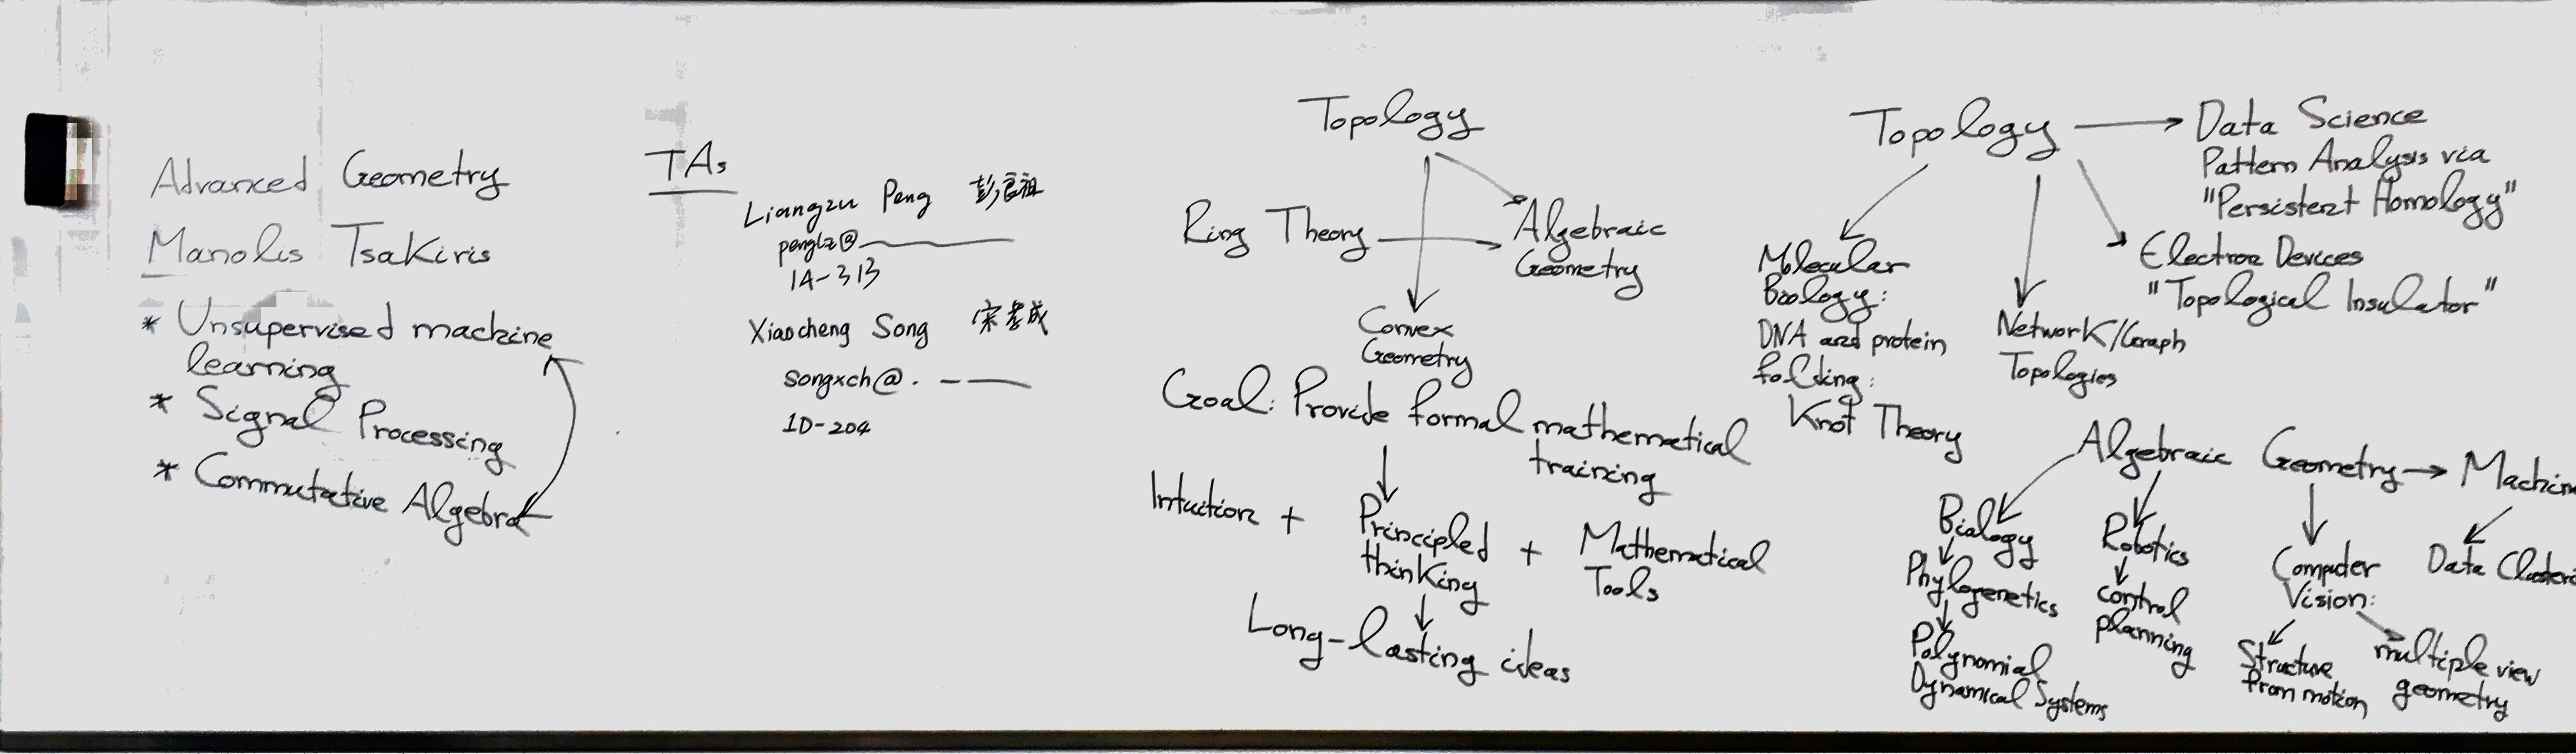 Advanced Geometry
Manolis Tsakiris
* Unsupervised machine
learning
* Signal Processing
* Commutative Algebra
TAs
Liangzu Peng 彭良祖
penglz@
1A-313
Xiaocheng Song 宋孝成
songxch@.
1D-204
Topology
Ring Theory
Algebraic
Geometry
Convex
Geometry
Goal: Provide formal mathematical
training
Intuition + Principled
thinking
+ Mathematical
Tools
Long-lasting ideas
Topology
Data Science
Pattern Analysis via
"Persistent Homology"
Electron Devices
"Topological Insulator"
Network/Graph
Topologies
Molecular
Biology:
DNA and protein
folding:
Knot Theory
Algebraic Geometry
Machin
Data Cluster
Biology
Phylogenetics
Polynomial
Dynamical Systems
Robotics
control
planning
Computer
Vision:
Structure
from motion
multiple view
geometry